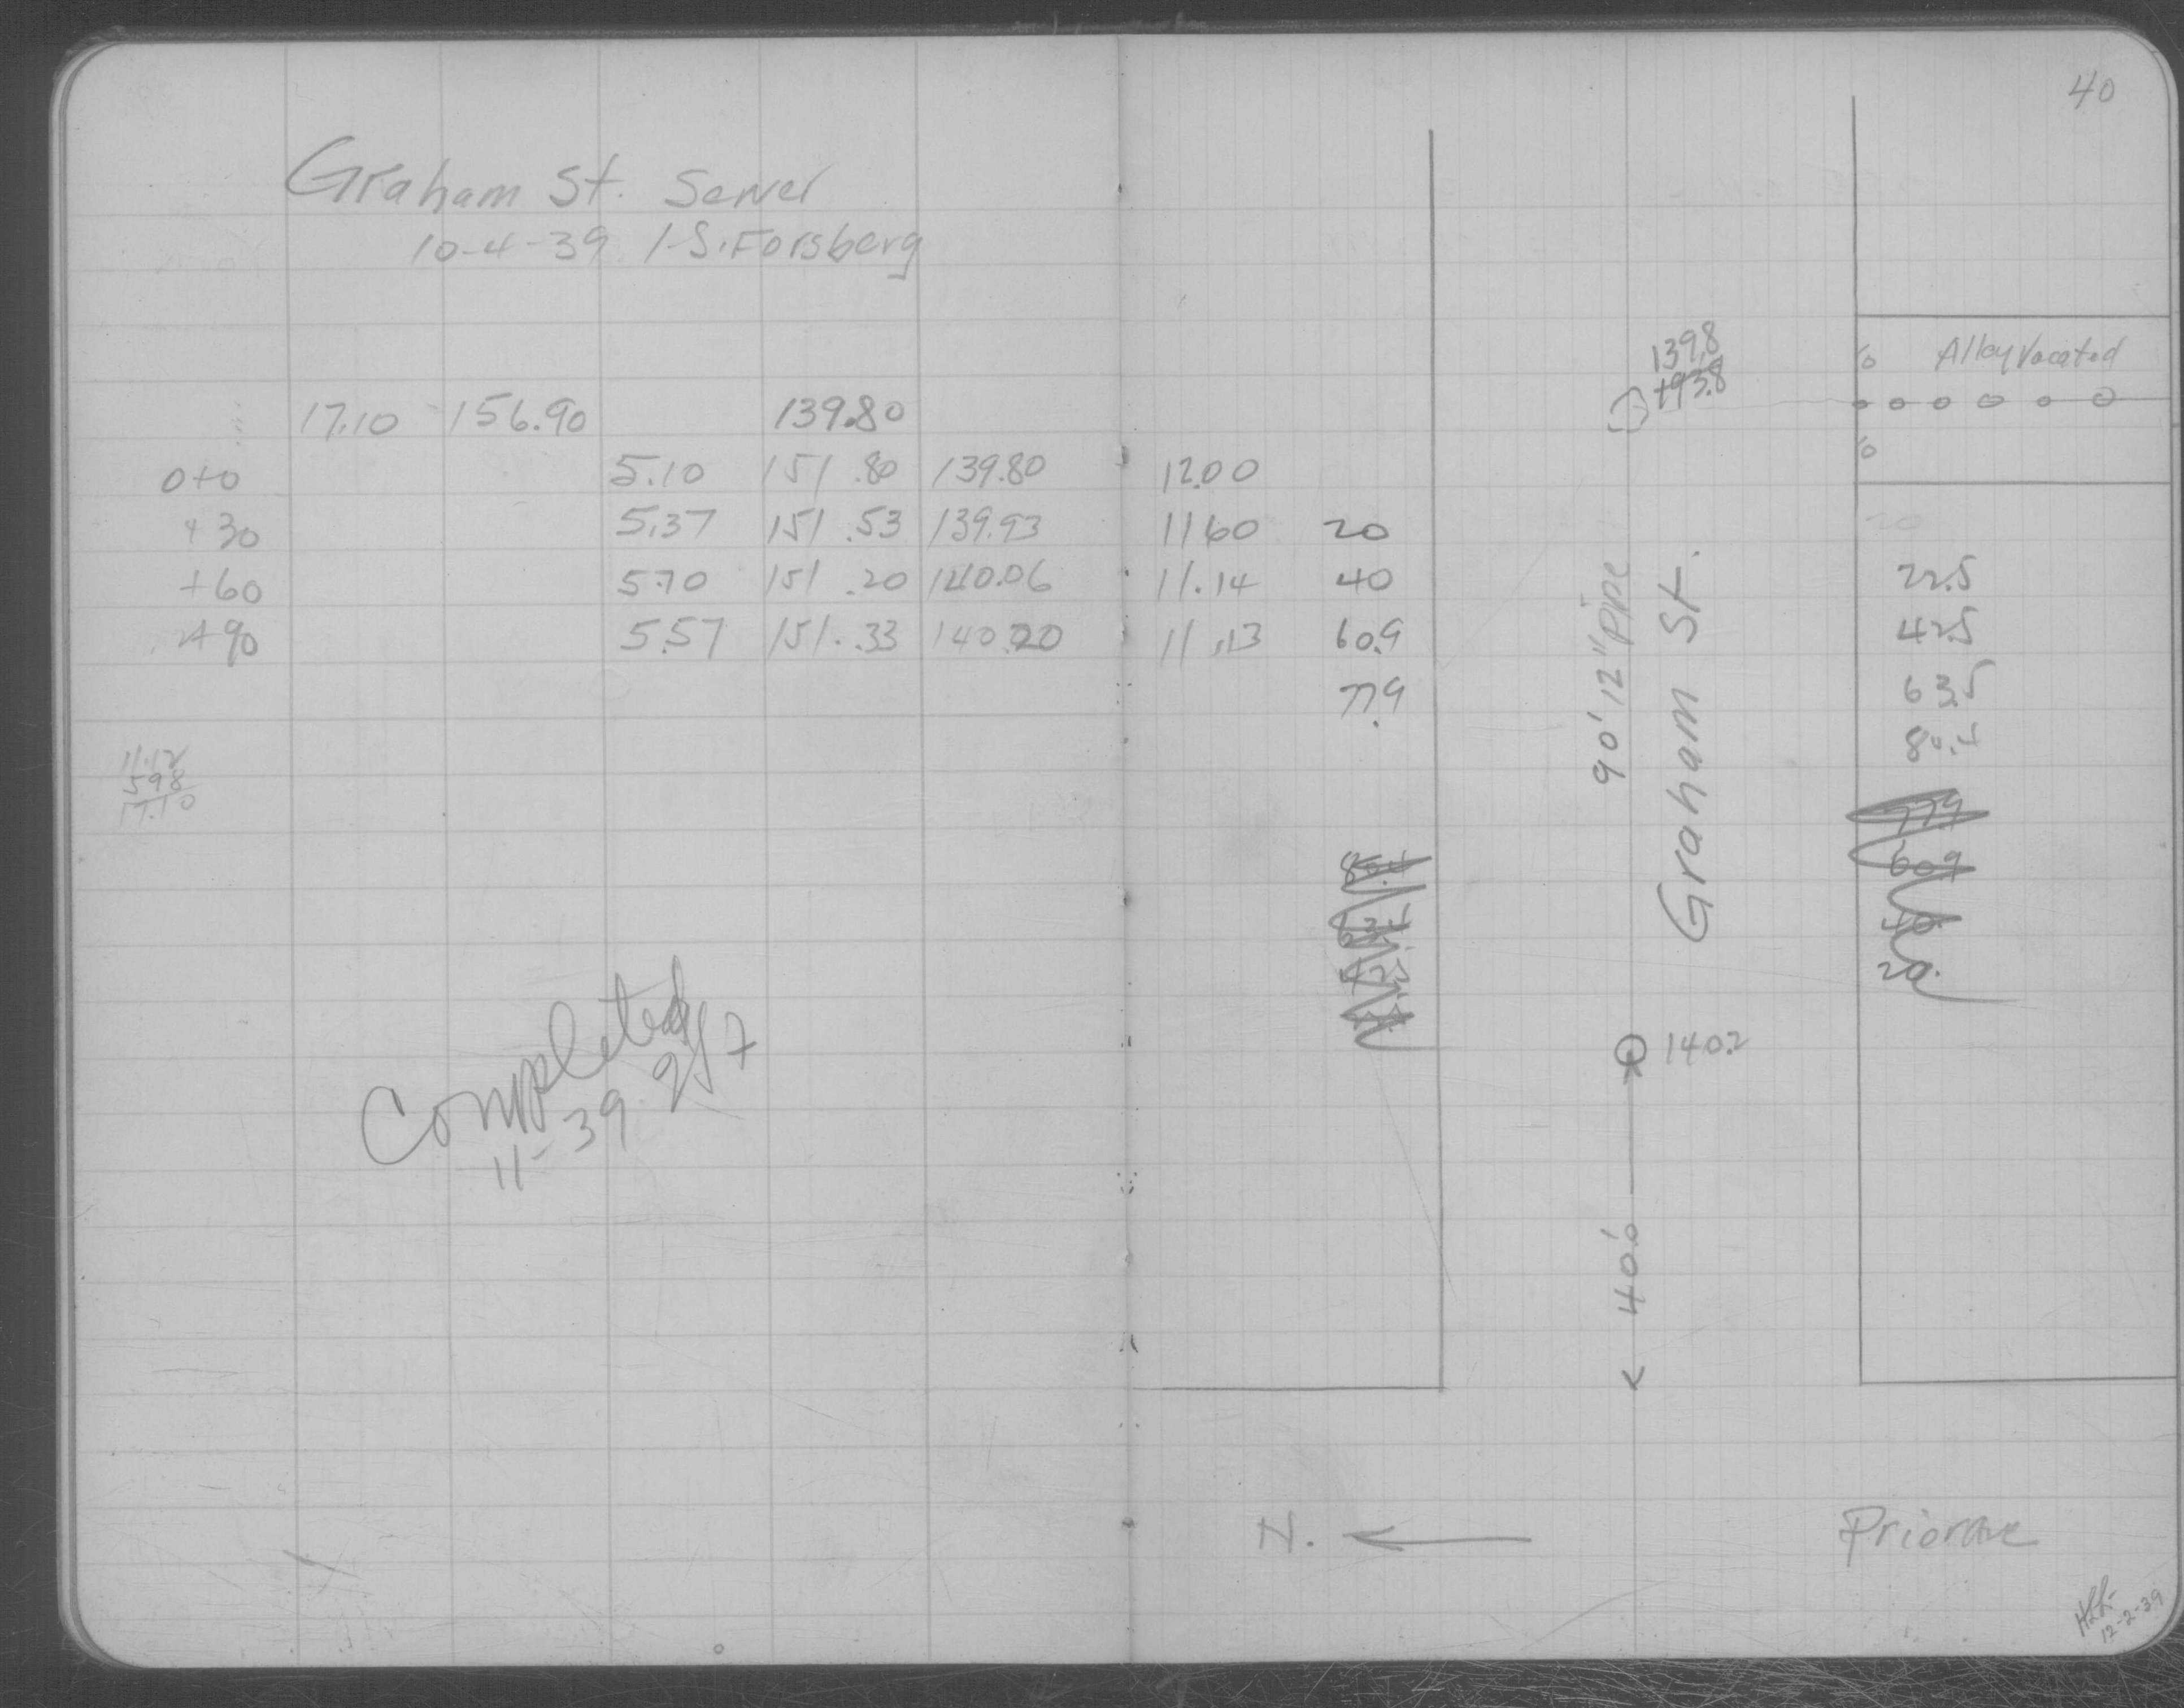 40
Graham St. Sewer
10-4-39 I.S. Forsberg
17.10 156.90 139.80
0+0 5.10 151.80 139.80 12.00
+30 5.37 151.53 139.93 1160 20
+60 5.70 151.20 140.06 11.14 40
+90 5.57 151.33 140.20 11.13 60.9
77.9
11.12
5.98
17.10
Completed
11-39
139.8
Alley Vacated
90' 12" Pipe
Graham St.
20
22.5
42.5
63.5
84.4
77.9
60.9
40
20.
140.2
40.6
N.
Prior Ave
12-2-39